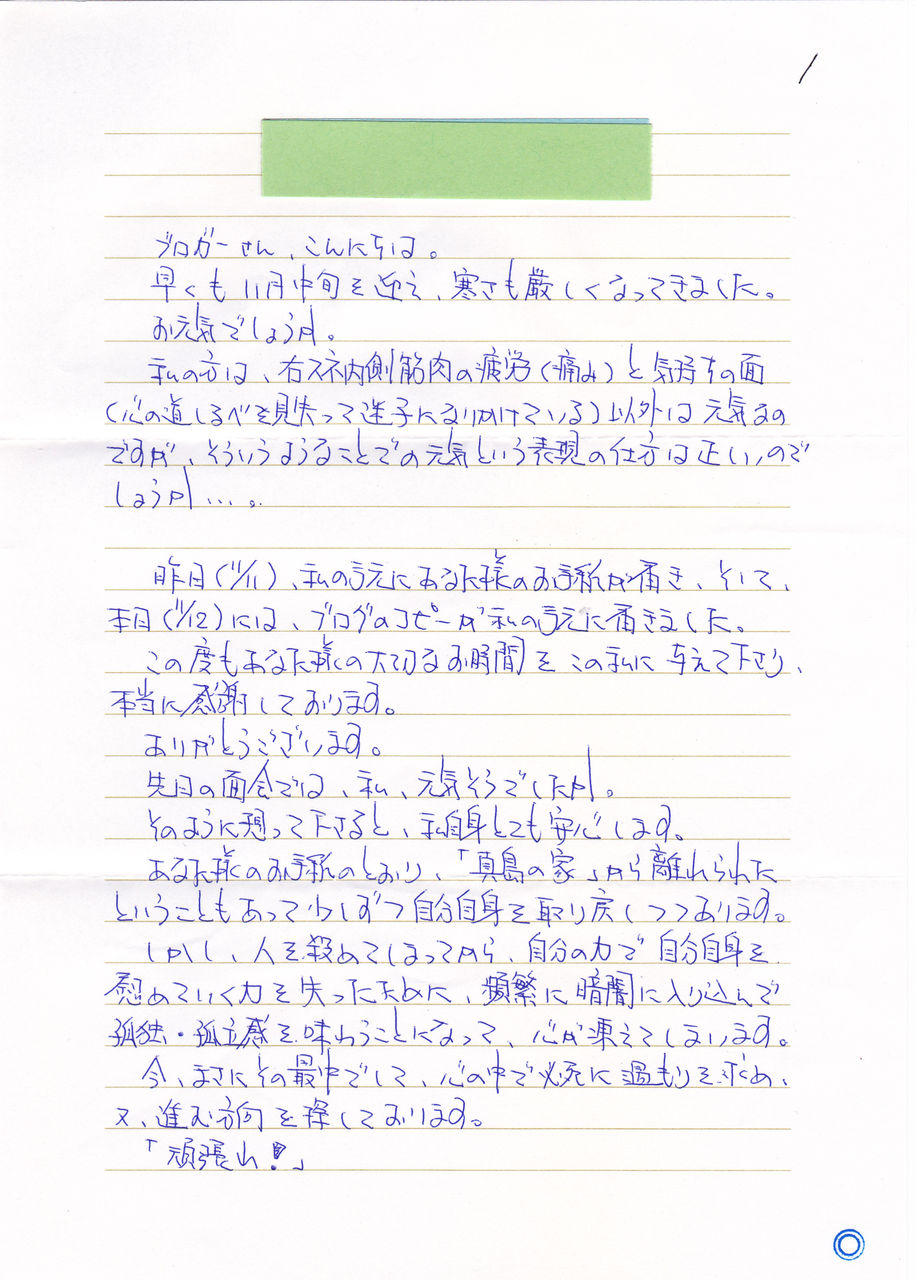 1
ブロガーさん、こんにちは。
早くも11月中旬を迎え、寒さも厳しくなってきました。
お元気でしょうか。
私の方は、右スネ内側筋肉の疲労(痛み)と気持ちの面
(心の道しるべを見失って迷子になりかけている)以外は元気なの
ですが、そういうようなことでの元気という表現の仕方は正しいので
しょうか…。
昨日(11/11)、私の元にあなた様のお手紙が届き、そして、
本日(11/12)には、ブログのコピーが私の元に届きました。
この度もあなた様の大切なお時間をこの私に与えて下さり、
本当に感謝しております。
ありがとうございます。
先日の面会では、私、元気そうでしたか。
そのように想って下さると、私自身とても安心します。
あなた様のお手紙のとおり、「真島の家」から離れられた
ということもあって少しずつ自分自身を取り戻しつつあります。
しかし、人を殺めてしまってから、自分の力で自分自身を
慰めていく力を失ったために、頻繁に暗闇に入り込んで
孤独・孤立感を味わうことになって、心が凍えてしまいます。
今、まさにその最中でして、心の中で必死に温もりを求め、
又、進む方向を探しております。
「頑張れ!」